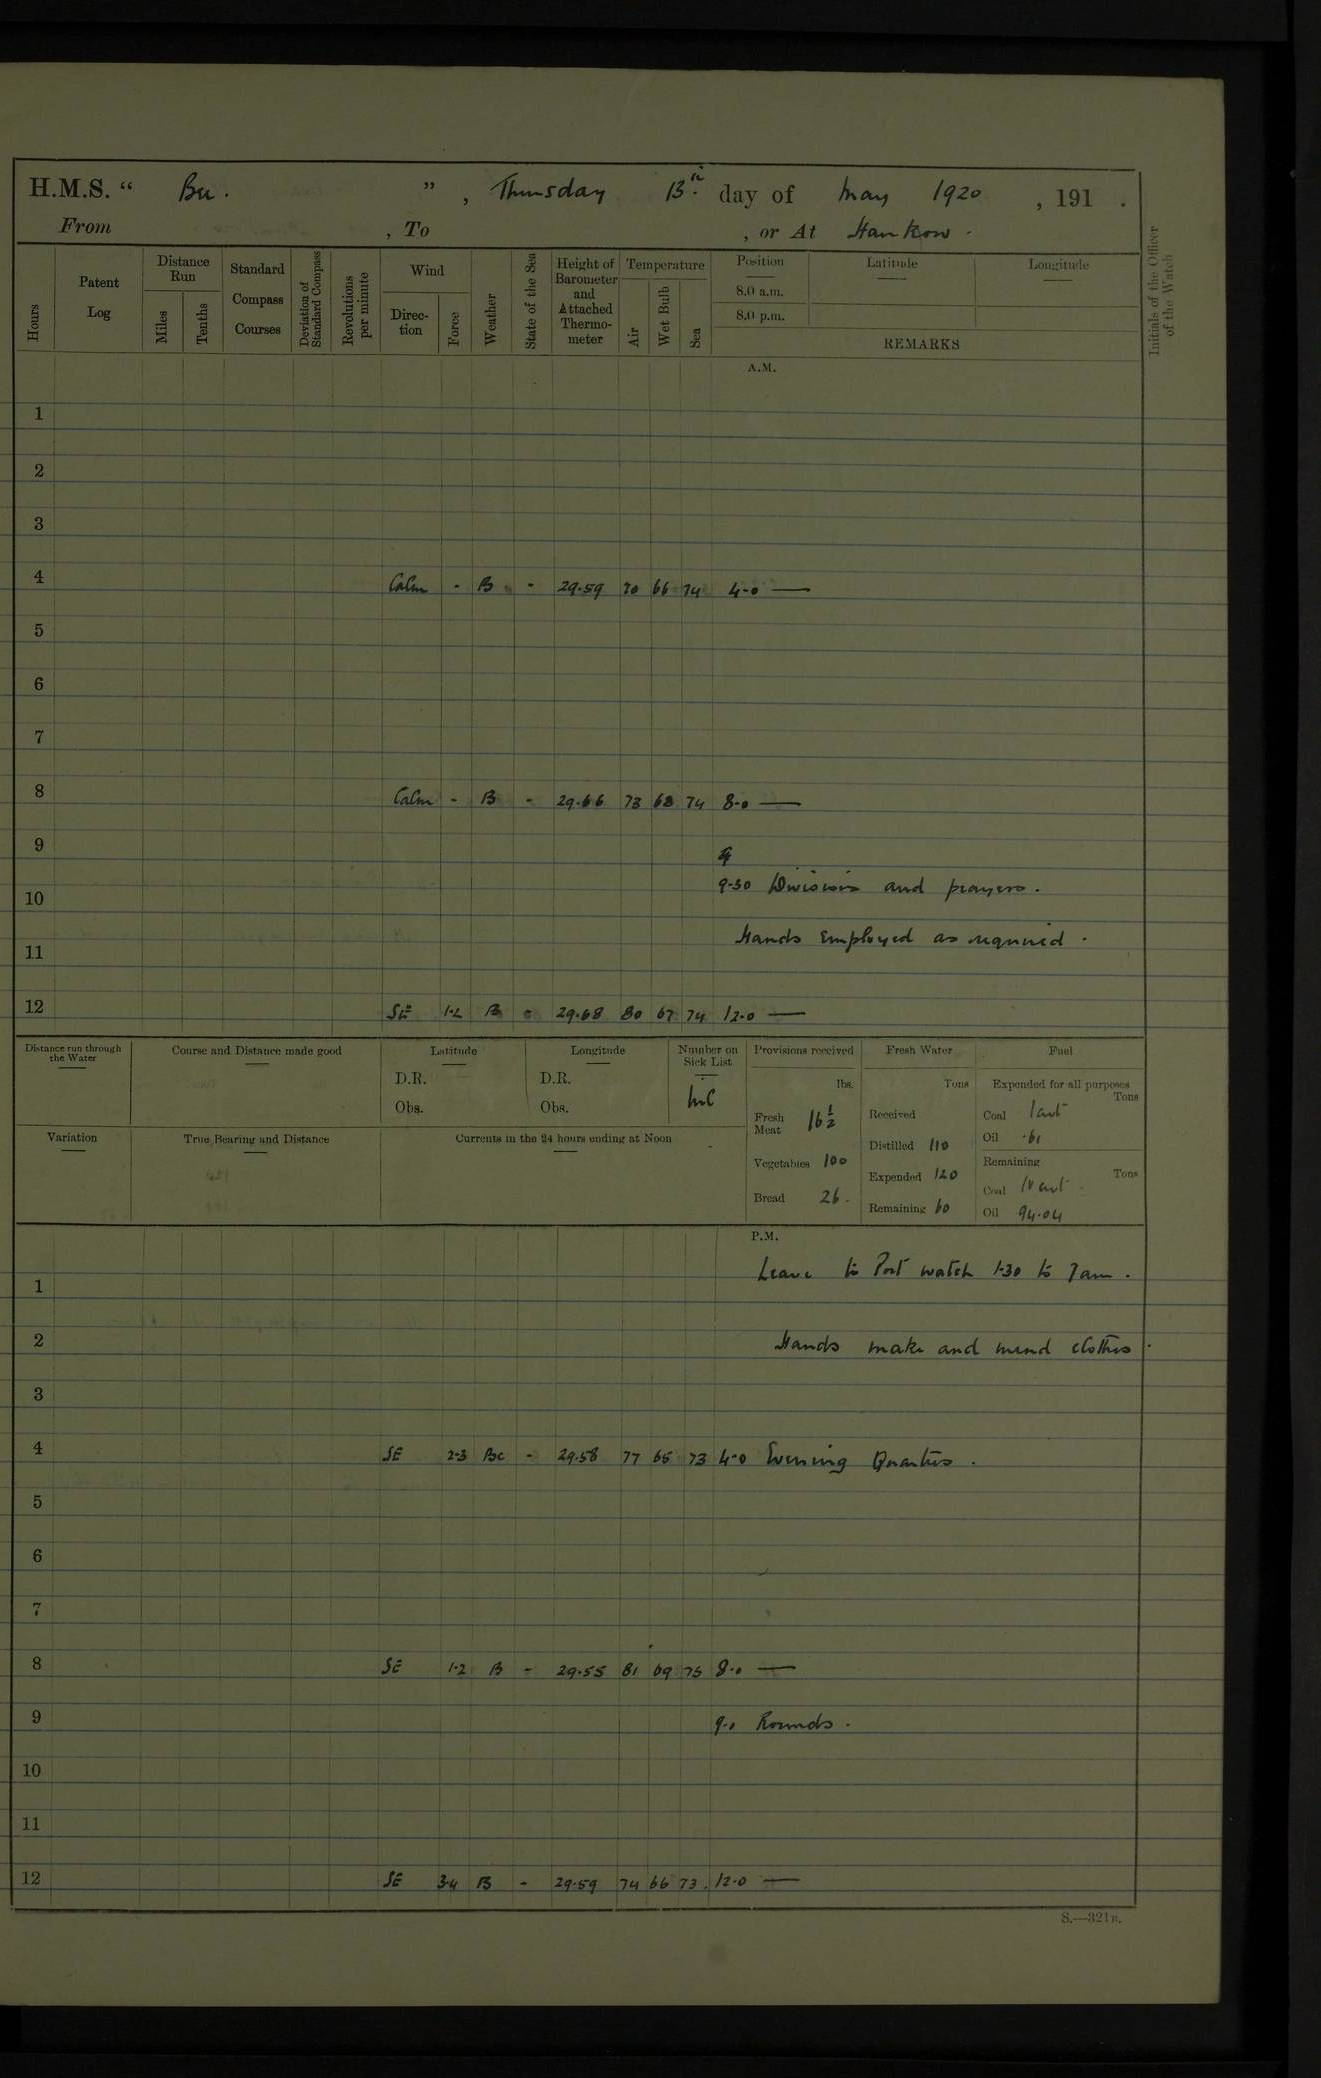 H.M.S. " Bee. ", Thursday 13th. day of May 1920, 191 .
From , To , or At Hankow.
Hours
Patent Log
Distance Run
Miles
Tenths
Standard Compass Courses
Deviation of Standard Compass
Revolutions per minute
Wind
Direction
Force
Weather
State of the Sea
Height of Barometer and Attached Thermometer
Temperature
Air
Wet Bulb
Sea
Position
8.0 a.m.
8.0 p.m.
Latitude
Longitude
REMARKS
Initials of the Officer of the Watch
A.M.
1
2
3
4 Calm - B - 29.59 70 66 74 4-0 —
5
6
7
8 Calm - B - 29.66 73 68 74 8-0 —
9
9-30 Divisions and prayers.
10
Hands employed as required.
11
12 SE 1-2 B - 29.68 80 67 74 12-0 —
Distance run through the Water
Course and Distance made good
Latitude
D.R.
Obs.
Longitude
D.R.
Obs.
Number on Sick List
Nil
Provisions received
lbs.
Fresh Meat 16 1/2
Vegetables 100
Bread 26.
Fresh Water
Tons
Received
Distilled 110
Expended 120
Remaining 60
Fuel
Expended for all purposes
Tons
Coal 1 cwt
Oil .61
Remaining
Tons
Coal cwt
Oil 94.04
Variation
True Bearing and Distance
Currents in the 24 hours ending at Noon
P.M.
Leave to Port watch 1-30 to 7am.
1
2 Hands make and mend clothes.
3
4 SE 2-3 Bc - 29.58 77 65 73 4-0 Evening Quarters.
5
6
7
8 SE 1-2 B - 29.55 81 69 75 8-0 —
9 9-0 Rounds.
10
11
12 SE 3-4 B - 29.59 74 66 73. 12-0 —
S.—321B.